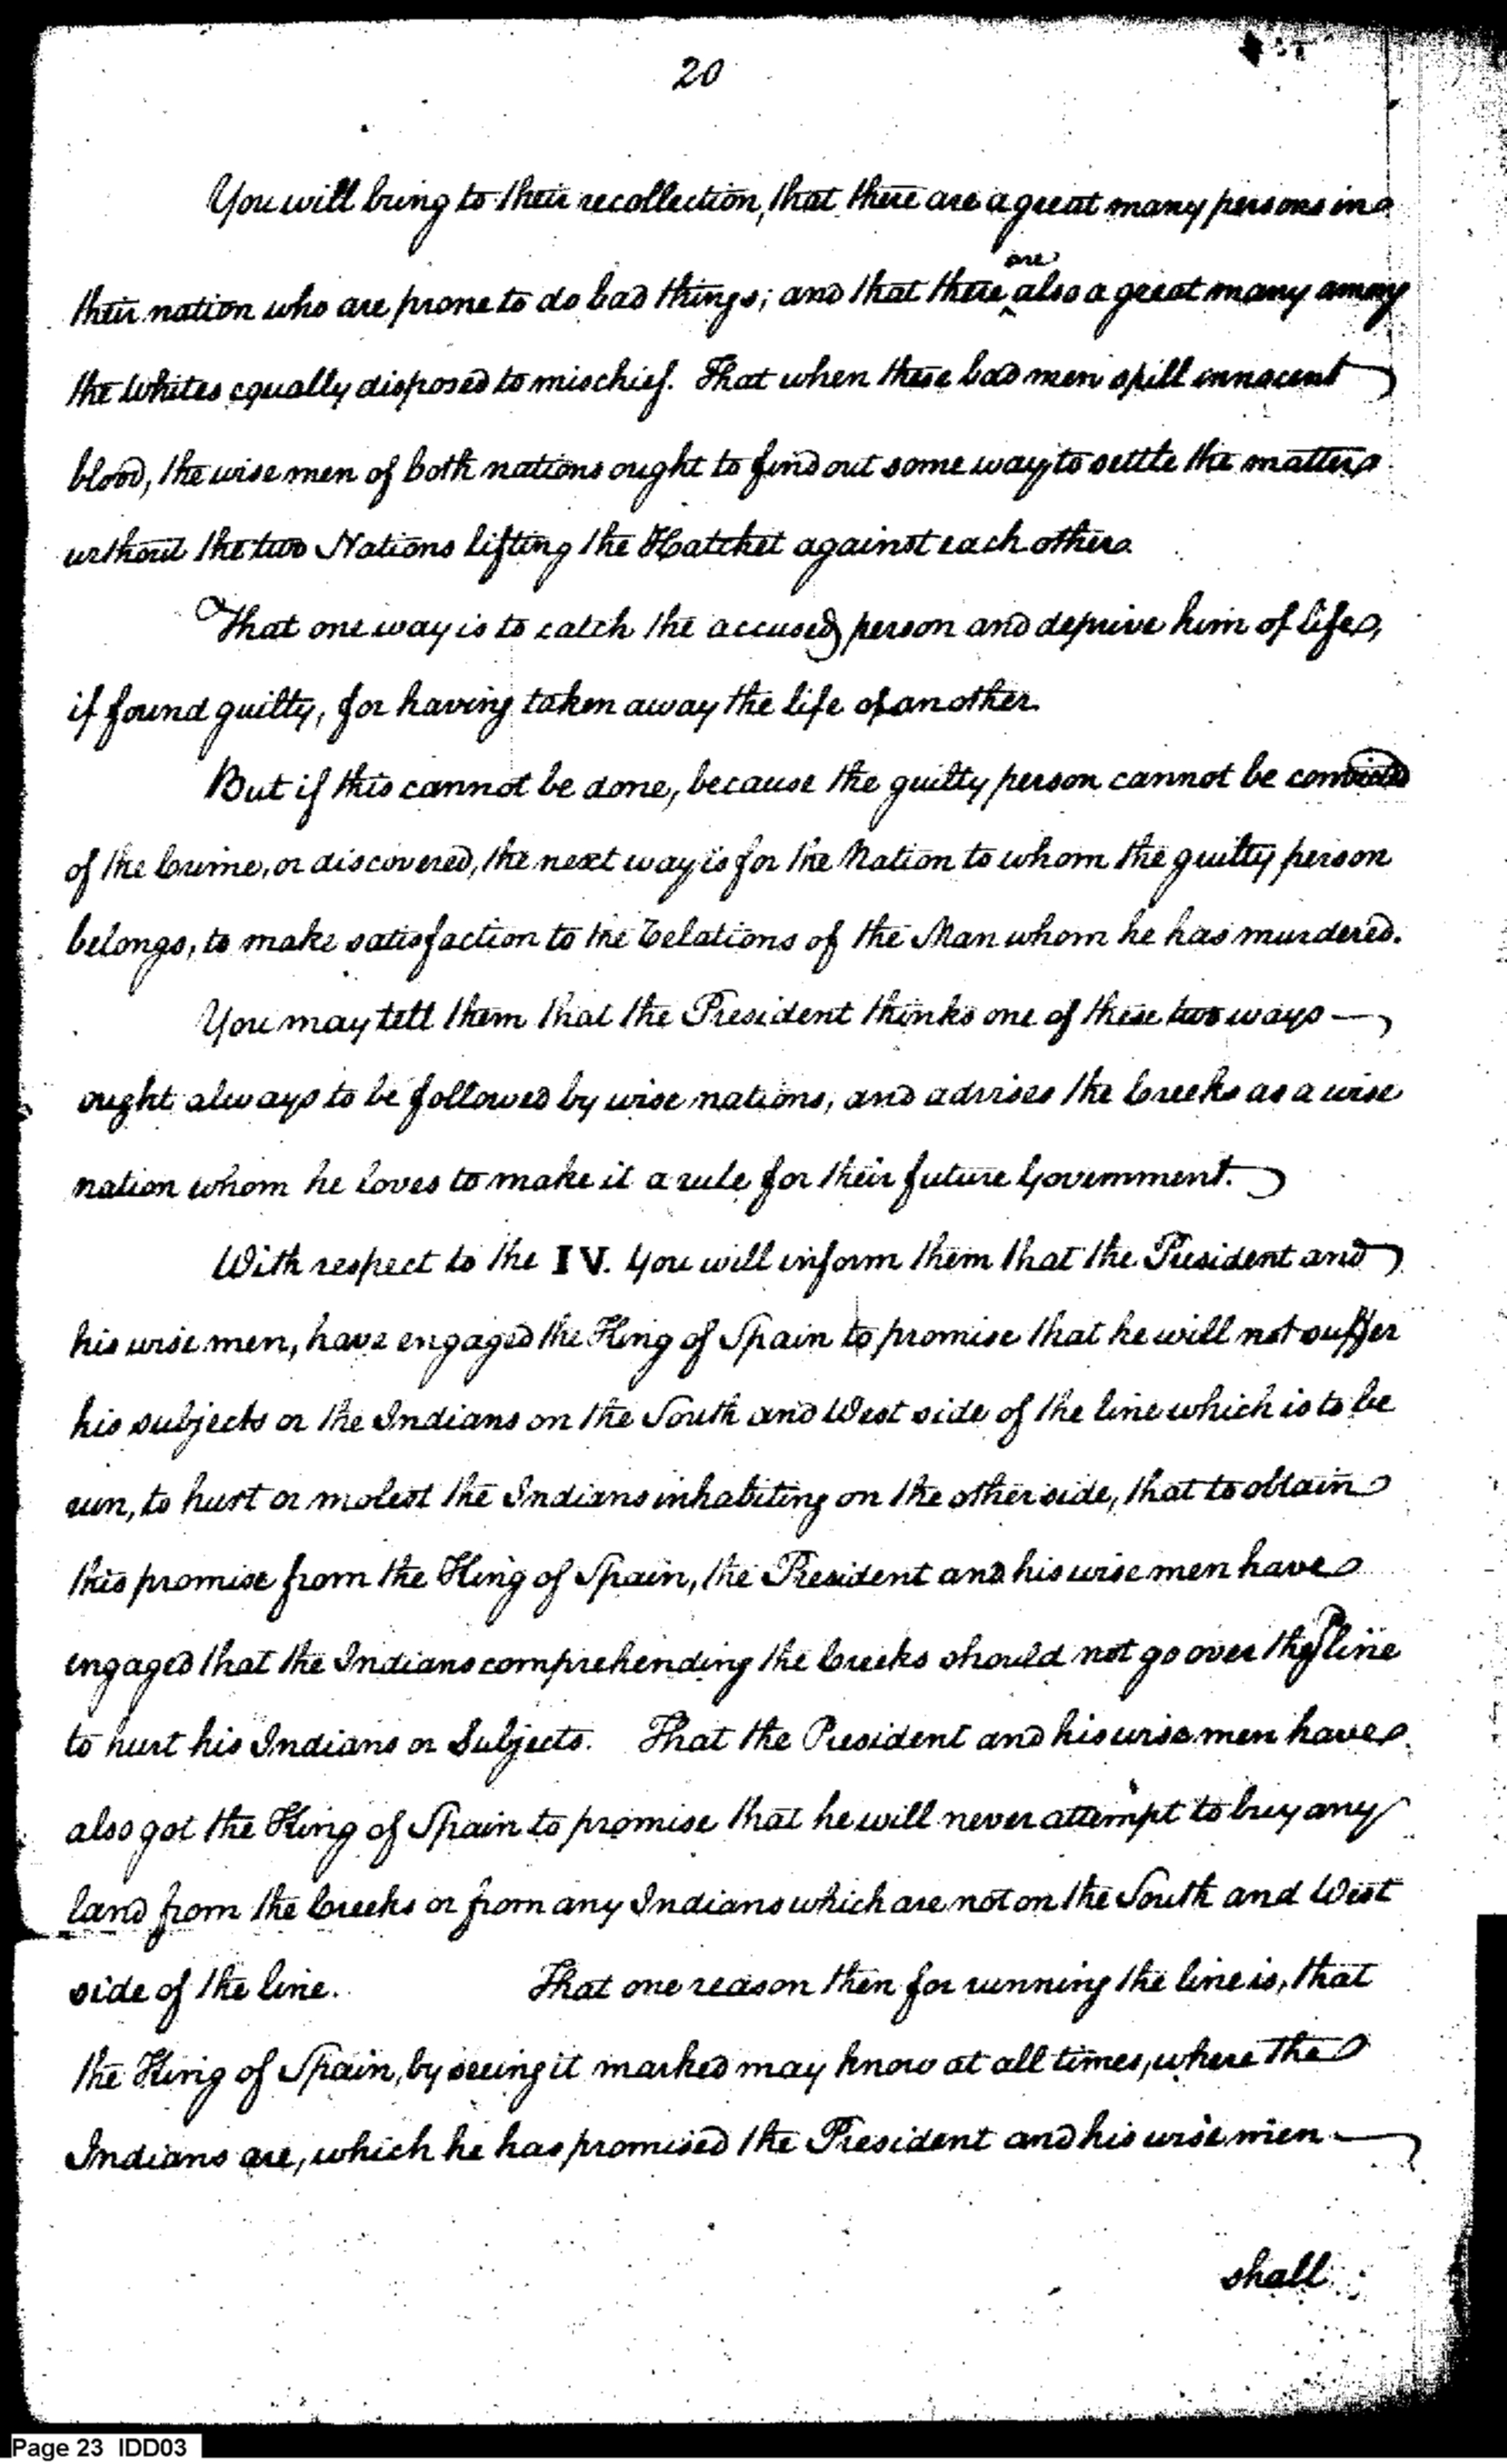 20
You will bring to their recollection, that there are a great many persons in
their nation who are prone to do bad things; and that there are also a great many among
the Whites equally disposed to mischief. That when these bad men spill innocent
blood, the wise men of both nations ought to find out some way to settle the matter
without the two Nations lifting the Hatchet against each other.
That one way is to catch the accused person and deprive him of life,
if found guilty, for having taken away the life of another.
But if this cannot be done, because the guilty person cannot be convicted
of the Crime, or discovered, the next way is for the Nation to whom the guilty person
belongs, to make satisfaction to the Relations of the Man whom he has murdered.
You may tell them that the President thinks one of these two ways
ought always to be followed by wise nations, and advises the Creeks as a wise
nation whom he loves to make it a rule for their future Government.
With respect to the IV. You will inform them that the President and
his wise men, have engaged the King of Spain to promise that he will not suffer
his subjects or the Indians on the South and West side of the line which is to be
run, to hurt or molest the Indians inhabiting on the other side, that to obtain
this promise from the King of Spain, the President and his wise men have
engaged that the Indians comprehending the Creeks should not go over the line
to hurt his Indians or Subjects. That the President and his wise men have
also got the King of Spain to promise that he will never attempt to buy any
land from the Creeks or from any Indians which are not on the South and West
side of the line. That one reason then for running the line is, that
the King of Spain, by seeing it marked may know at all times, where the
Indians are, which he has promised the President and his wise men
shall
Page 23 IDD03